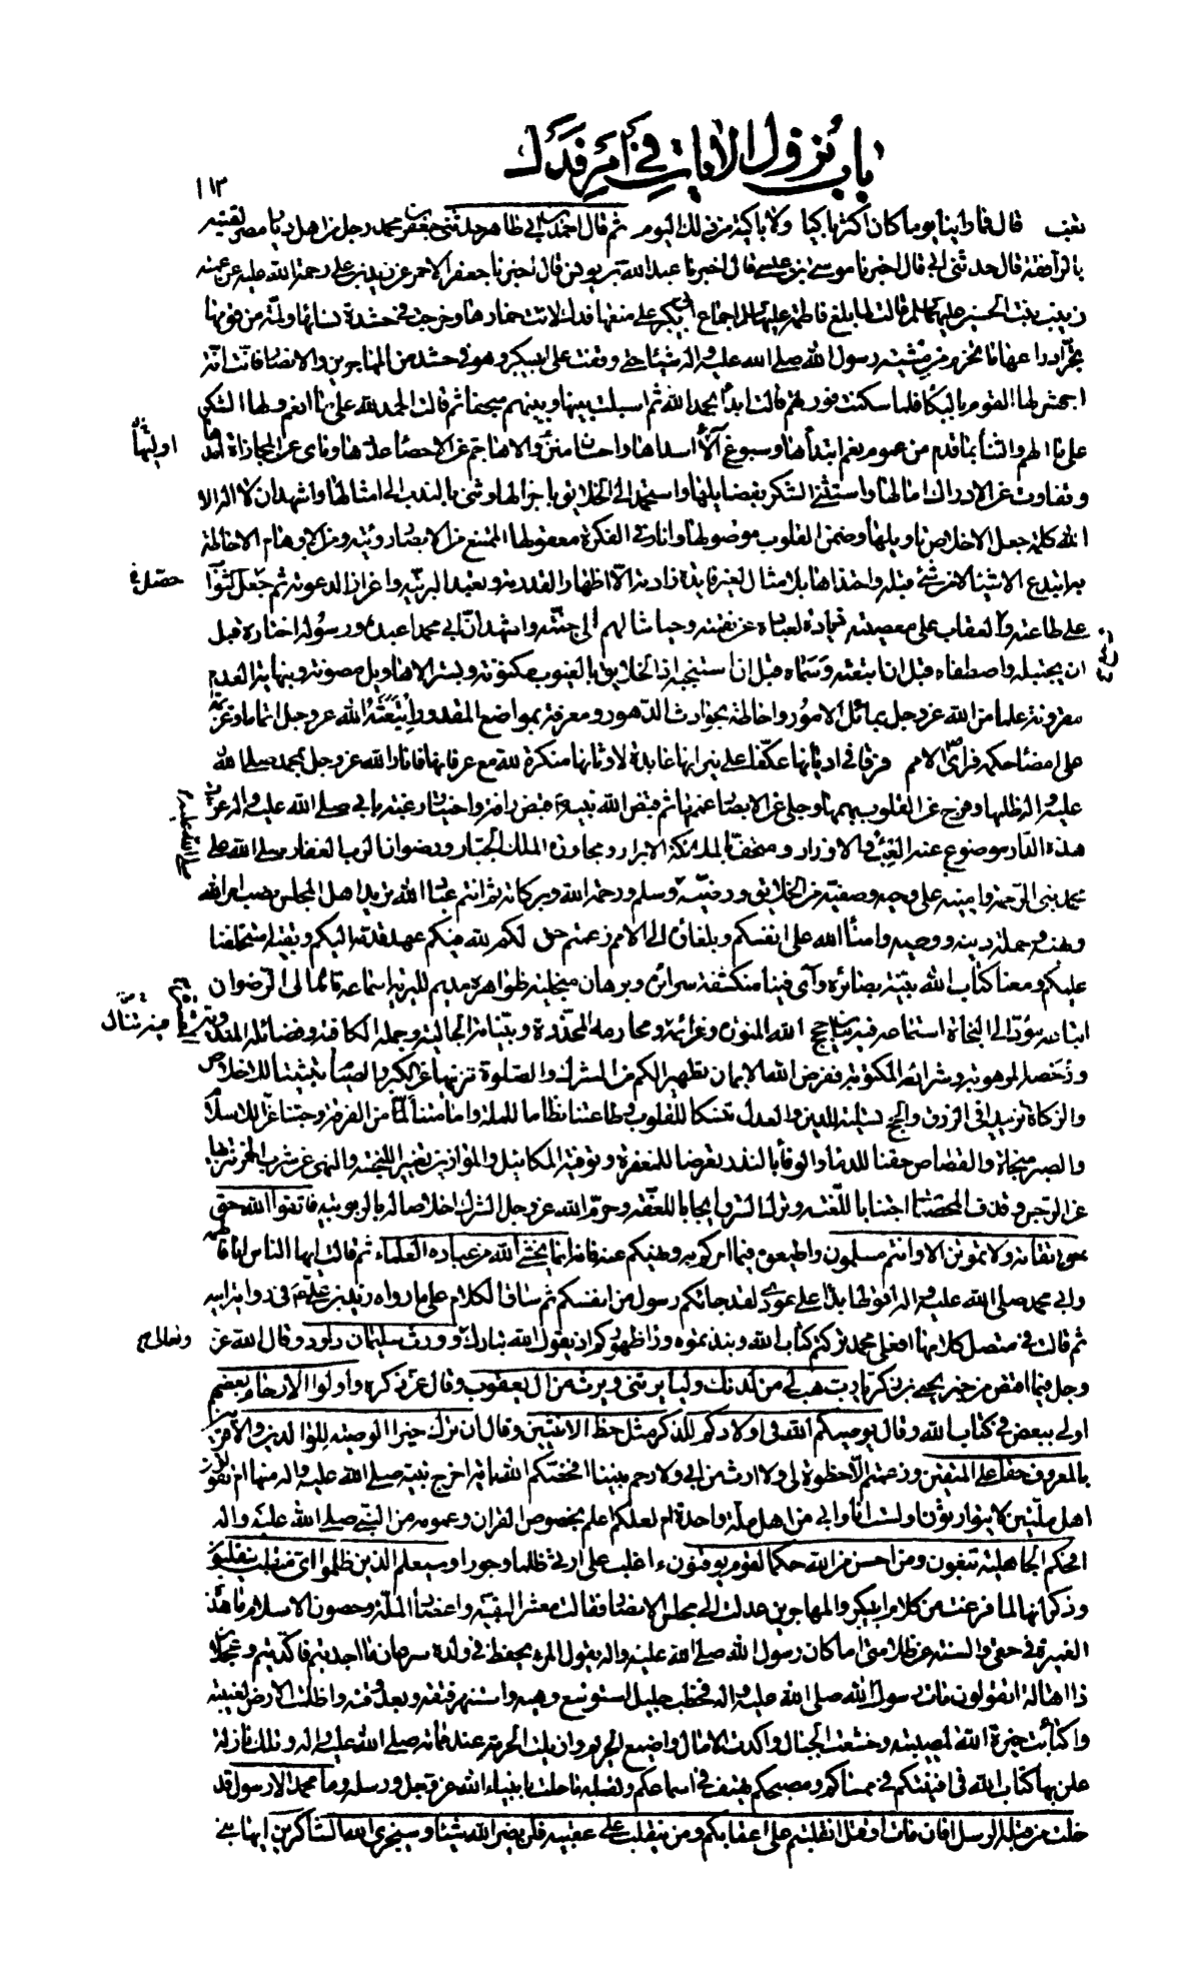 باب نزول الايات في أمر فدك
١١٣
قال فما راينا يوما كان اكثر باكيا ولا باكية من ذلك اليوم ثم قال احمد بن ابي طاهر حدثني جعفر بن محمد رجل من اهل ديار مصر لقيته
بالرافقة قال حدثني ابي قال اخبرنا موسى بن عيسى قال اخبرنا عبد الله بن يونس قال اخبرنا جعفر الاحمر عن زيد بن علي رحمة الله عليه عن عمته
زينب بنت الحسين عليهما السلم قالت لما بلغ فاطمة عليها السلم اجماع ابي بكر على منعها فدك لاثت خمارها وخرجت في حشدة نسائها ولمة من قومها
تجر ادراعها ما تخرم من مشية رسول الله صلى الله عليه واله شيئا حتى وقفت على ابي بكر وهو في حشد من المهاجرين والانصار فانت انة
اجهش لها القوم بالبكاء فلما سكنت فورتهم قالت ابدأ بحمد الله ثم اسبلت بينها وبينهم سجفا ثم قالت الحمد لله على ما انعم وله الشكر
على ما الهم والثناء بما قدم من عموم نعم ابتدأها وسبوغ آلاء اسداها واحسان منن والاها جم عن الاحصاء عددها وناى عن المجازاة امدها
اوليها
وتفاوت عن الادراك امالها واستثن الشكر بفضايلها واستحمد الى الخلايق باجزالها وثنى بالندب الى امثالها واشهد ان لا اله الا
الله كلمة جعل الاخلاص تاويلها وضمن القلوب موصولها وانار في الفكرة معقولها الممتنع من الابصار رؤيته ومن الاوهام الاحاطة
به ابتدع الاشياء لا من شئ قبله واحتذاها بلا مثال لغير فايدة زادته الا اظهارا لقدرته وتعبدا لبريته واعزازا لدعوته ثم جعل الثواب
على طاعته والعقاب على معصيته ذيادة لعباده عن نقمته وحياشا لهم الى جنته واشهد ان ابي محمدا عبده ورسوله اختاره قبل
ان يجتبله واصطفاه قبل ان ابتعثه وسماه قبل ان استنجبه اذ الخلايق بالغيوب مكنونة وبستر الاهاويل مصونة وبنهاية العدم
مقرونة علما من الله عز وجل بمائل الامور واحاطة بحوادث الدهور ومعرفة بمواضع المقدور ابتعثه الله عز وجل اتماما وعزيمة
على امضاء حكمه فراى الامم فرقا في اديانها عكفا على نيرانها عابدة لاوثانها منكرة لله مع عرفانها فانار الله عز وجل بمحمد صلى الله
عليه واله ظلمها وفرج عن القلوب بهمها وجلى عن الابصار غممها ثم قبض الله نبيه قبض رافة واختيار رغبة بابي صلى الله عليه واله عن
هذه الدار موضوع عنه العبء والاوزار ومحتف بالملائكة الابرار ومجاورة الملك الجبار ورضوان الرب الغفار صلى الله على
محمد نبي الرحمة وامينه على وحيه وصفيه من الخلايق ورضيه وسلم ورحمة الله وبركاته ثم انتم عباد الله تريد اهل المجلس نصب امر الله
ونهيه وحملة دينه ووحيه وامناء الله على انفسكم وبلغاؤه الى الامم زعمتم حق لكم لله فيكم عهد قدمه اليكم وبقية استخلفنا
عليكم ومعنا كتاب الله بينة بصائره وآي فينا منكشفة سرائره وبرهان منجلية ظواهره مديم للبرية اسماعه قائدا الى الرضوان
اتباعه مؤد الى النجاة استماعه فيه بيان حجج الله المنورة وعزائمه ومحارمه المحذرة وبيناته الجالية وجمله الكافية وفضائله المندوبة
ورخصه الموهوبة وشرائعه المكتوبة ففرض الله الايمان تطهيرا لكم من الشرك والصلوة تنزيها عن الكبر والصيام تثبيتا للاخلاص
والزكاة تزييدا في الرزق والحج تسلية للدين والعدل تنسكا للقلوب وطاعتنا نظاما للملة وامامتنا لما من الفرقة وحبنا عزا للاسلام
والصبر منجاة والقصاص حقنا للدماء والوفاء بالنذر تعرضا للمغفرة وتوفية المكائيل والموازين تغييرا للبخسة والنهي عن شرب الخمر تنزيها
عن الرجس وقذف المحصنات اجتنابا للعنة وترك السرق ايجابا للعفة وحرم الله عز وجل الشرك اخلاصا له بالربوبية فاتقوا الله حق
تقاته ولا تموتن الا وانتم مسلمون واطيعوه فيما امركم به ونهيكم عنه فانه انما يخشى الله من عباده العلماء ثم قالت ايها الناس انا فاطمة
وابي محمد صلى الله عليه واله اقولها بدءا على عودي لقد جائكم رسول من انفسكم ثم ساق الكلام على ما رواه زيد بن علي في روايته ابيه
ثم قالت في متصل كلامها افعلى محمد تركتم كتاب الله ونبذتموه وراء ظهوركم اذ يقول الله تبارك وورث سليمان داود وقال الله عز
وتعالى
وجل فيما اقتص من خبر يحيى بن زكريا رب هب لي من لدنك وليا يرثني ويرث من ال يعقوب وقال عز ذكره واولوا الارحام بعضهم
اولى ببعض في كتاب الله وقال يوصيكم الله في اولادكم للذكر مثل حظ الانثيين وقال ان ترك خيرا الوصية للوالدين والاقربين
بالمعروف حقا على المتقين وزعمتم الا حظوة لي ولا ارث من ابي ولا رحم بيننا افخصكم الله باية اخرج نبيه صلى الله عليه واله منها ام تقولون
اهل ملتين لا يتوارثون اولست انا وابي من اهل ملة واحدة ام لعلكم اعلم بخصوص القران وعمومه من النبي صلى الله عليه واله
افحكم الجاهلية تبغون ومن احسن من الله حكما لقوم يوقنون ءاغلب على ارثي ظلما وجورا وسيعلم الذين ظلموا اي منقلب ينقلبون
وذكر انها لما فرغت من كلام ابي بكر والمهاجرين عدلت الى مجلس الانصار فقالت معشر البقية واعضاد الملة وحصون الاسلام ما هذه
الغميزة في حقي والسنة عن ظلامتي اما كان رسول الله صلى الله عليه واله يقول المرء يحفظ في ولده سرعان ما اجدبتم فاكديتم وعجلان
ذا اهالة اتقولون مات رسول الله صلى الله عليه واله فخطب جليل استوسع وهيه واستنهر فتقه وبعد وقته واظلمت الارض لغيبته
واكتأبت خيرة الله لمصيبته وخشعت الجبال واكدت الامال واضيع الحريم واذيلت الحرمة عند مماته صلى الله عليه واله وتلك نازلة
علن بها كتاب الله في افنيتكم في ممساكم ومصبحكم يهتف في اسماعكم ولقبله ما حلت بانبياء الله عز وجل ورسله وما محمد الا رسول قد
خلت من قبله الرسل افان مات او قتل انقلبتم على اعقابكم ومن ينقلب على عقبيه فلن يضر الله شيئا وسيجزي الله الشاكرين ايها بني